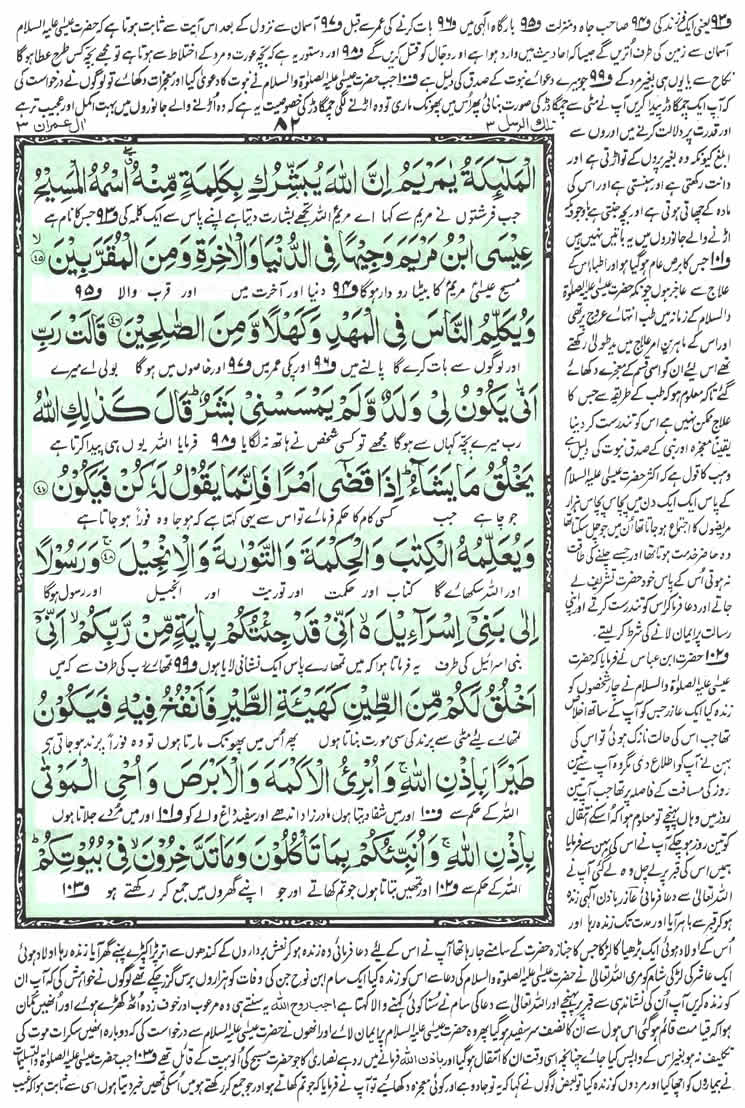 و۹۳ یعنی ایک فرزند کی و۹۴ صاحب جاہ و منزلت و۹۵ بارگاہِ الٰہی میں و۹۶ بات کرنے کی عمر سے قبل و۹۷ آسمان سے نزول کے بعد اس آیت سے ثابت ہوتا ہے کہ حضرت عیسٰی علیہ السلام
آسمان سے زمین کی طرف اُتریں گے جیسا کہ احادیث میں وارد ہوا ہے اور دجال کو قتل کریں گے و۹۸ اور دستور یہ ہے کہ بچہ عورت و مرد کے اختلاط سے ہوتا ہے تو مجھے بچہ کس طرح عطا ہوگا
نکاح سے یا یوں ہی بغیر مرد کے و۹۹ جو میرے دعوائے نبوت کے صدق کی دلیل ہے و۱۰۰ جب حضرت عیسٰی علیہ الصلوٰۃ والسلام نے نبوت کا دعوٰی کیا اور معجزات دکھائے تو لوگوں نے درخواست کی
کہ آپ ایک چمگادڑ پیدا کریں آپ نے مٹی سے چمگادڑ کی صورت بنائی پھر اس میں پھونک ماری تو وہ اڑنے لگی چمگادڑ کی خصوصیت یہ ہے کہ وہ اُڑنے والے جانوروں میں بہت اکمل اور عجیب تر ہے
تلك الرسل ۳
۸۲
اٰل عمران ۳
الْمَلٰٓئِكَةُ يٰمَرْيَمُ اِنَّ اللّٰهَ يُبَشِّرُكِ بِكَلِمَةٍ مِّنْهُ ۖ اسْمُهُ الْمَسِيْحُ
جب فرشتوں نے مریم سے کہا اے مریم اللہ تجھے بشارت دیتا ہے اپنے پاس سے ایک کلمہ کی و۹۳ جس کا نام ہے
عِيْسَى ابْنُ مَرْيَمَ وَجِيْهًا فِى الدُّنْيَا وَالْاٰخِرَةِ وَمِنَ الْمُقَرَّبِيْنَ ۙ۴۵
مسیح عیسٰی مریم کا بیٹا رو دار ہوگا و۹۴ دنیا اور آخرت میں اور قرب والا و۹۵
وَيُكَلِّمُ النَّاسَ فِى الْمَهْدِ وَكَهْلًا وَّمِنَ الصّٰلِحِيْنَ ۴۶ قَالَتْ رَبِّ
اور لوگوں سے بات کرے گا پالنے میں و۹۶ اور پکی عمر میں و۹۷ اور خاصوں میں ہو گا بولی اے میرے
اَنّٰى يَكُوْنُ لِىْ وَلَدٌ وَّلَمْ يَمْسَسْنِىْ بَشَرٌ ؕ قَالَ كَذٰلِكِ اللّٰهُ
رب میرے بچہ کہاں سے ہوگا مجھے تو کسی شخص نے ہاتھ نہ لگایا و۹۸ فرمایا اللہ یوں ہی پیدا کرتا ہے
يَخْلُقُ مَا يَشَآءُ ؕ اِذَا قَضٰٓى اَمْرًا فَاِنَّمَا يَقُوْلُ لَهٗ كُنْ فَيَكُوْنُ ۴۷
جو چاہے جب کسی کام کا حکم فرمائے تو اس سے یہی کہتا ہے کہ ہو جا وہ فوراً ہو جاتا ہے
وَيُعَلِّمُهُ الْكِتٰبَ وَالْحِكْمَةَ وَالتَّوْرٰىةَ وَالْاِنْجِيْلَ ۚ۴۸ وَرَسُوْلًا
اور اللہ سکھائے گا کتاب اور حکمت اور توریت اور انجیل اور رسول ہوگا
اِلٰى بَنِىْٓ اِسْرَآءِيْلَ ۙ۬ اَنِّىْ قَدْ جِئْتُكُمْ بِاٰيَةٍ مِّنْ رَّبِّكُمْ ۙ اَنِّىْٓ
بنی اسرائیل کی طرف یہ فرماتا ہوا کہ میں تمھارے پاس ایک نشانی لایا ہوں و۹۹ تمھارے رب کی طرف سے کہ میں
اَخْلُقُ لَكُمْ مِّنَ الطِّيْنِ كَهَيْـَٔةِ الطَّيْرِ فَاَنْفُخُ فِيْهِ فَيَكُوْنُ
تمھارے لیے مٹی سے پرند کی سی مورت بناتا ہوں پھر اس میں پھونک مارتا ہوں تو وہ فوراً پرند ہو جاتی ہے
طَيْرًۢا بِاِذْنِ اللّٰهِ ۚ وَاُبْرِئُ الْاَكْمَهَ وَالْاَبْرَصَ وَاُحْىِ الْمَوْتٰى
اللہ کے حکم سے و۱۰۰ اور میں شفا دیتا ہوں مادر زاد اندھے اور سفید داغ والے کو و۱۰۱ اور میں مُردے جلاتا ہوں
بِاِذْنِ اللّٰهِ ۚ وَاُنَبِّئُكُمْ بِمَا تَاْكُلُوْنَ وَمَا تَدَّخِرُوْنَ ۙ فِىْ بُيُوْتِكُمْ ؕ
اللہ کے حکم سے و۱۰۲ اور تمھیں بتاتا ہوں جو تم کھاتے اور جو اپنے گھروں میں جمع کر رکھتے ہو و۱۰۳
اور قدرت پر دلالت کرنے میں اوروں سے
ابلغ کیونکہ وہ بغیر پروں کے تو اڑتی ہے اور
دانت رکھتی ہے اور ہنستی ہے اور اس کی
مادہ کے چھاتی ہوتی ہے اور بچہ جنتی ہے باوجودیکہ
اڑنے والے جانوروں میں یہ باتیں نہیں ہیں
و۱۰۱ جس کا برص عام ہو گیا ہو اور اطباء اس کے
علاج سے عاجز ہوں چونکہ حضرت عیسٰی علیہ الصلوٰۃ
والسلام کے زمانہ میں طب انتہائے عروج پر تھی
اور اس کے ماہرین امر علاج میں یدِ طولٰی رکھتے
تھے اس لئے ان کو اسی قسم کے معجزے دکھائے
گئے تاکہ معلوم ہو کہ طب کے طریقہ سے جس کا
علاج ممکن نہیں ہے اس کو تندرست کر دینا
یقیناً معجزہ اور نبی کے صدقِ نبوت کی دلیل ہے
وہب کا قول ہے کہ اکثر حضرت عیسٰی علیہ السلام
کے پاس ایک ایک دن میں پچاس پچاس ہزار
مریضوں کا اجتماع ہو جاتا تھا اُن میں جو چل سکتا تھا
وہ حاضر خدمت ہوتا تھا اور جسے چلنے کی طاقت
نہ ہوتی اُس کے پاس خود حضرت تشریف لے
جاتے اور دعا فرما کر اس کو تندرست کرتے اور اپنی
رسالت پر ایمان لانے کی شرط کر لیتے۔
و۱۰۲ حضرت ابن عباس نے فرمایا کہ حضرت
عیسٰی علیہ الصلوٰۃ والسلام نے چار شخصوں کو
زندہ کیا ایک عازر جس کو آپ کے ساتھ اخلاص
تھا جب اس کی حالت نازک ہوئی تو اس کی
بہن نے آپ کو اطلاع دی مگر وہ آپ سے تین
روز کی مسافت کے فاصلہ پر تھا جب آپ تین
روز میں وہاں پہنچے تو معلوم ہوا کہ اسکے انتقال
کو تین روز ہو چکے آپ نے اس کی بہن سے فرمایا
ہمیں اس کی قبر پر لے چل وہ لے گئی آپ نے
اللہ تعالٰی سے دعا فرمائی عازر باذنِ الٰہی زندہ
ہو کر قبر سے باہر آیا اور مدت تک زندہ رہا اور
اُس کے اولاد ہوئی ایک بڑھیا کا لڑکا جس کا جنازہ حضرت کے سامنے جا رہا تھا آپ نے اس کے لئے دعا فرمائی وہ زندہ ہو کر نعش برداروں کے کندھوں سے اتر پڑا کپڑے پہنے گھر آیا زندہ رہا اولاد ہوئی
ایک عاشر کی لڑکی شام کو مری اللہ تعالٰی نے حضرت عیسٰی علیہ الصلوٰۃ والسلام کی دعا سے اس کو زندہ کیا ایک سام ابن نوح جن کی وفات کو ہزاروں برس گزر چکے تھے لوگوں نے خواہش کی کہ آپ ان
کو زندہ کریں آپ اُن کی نشاندہی سے قبر پر پہنچے اور اللہ تعالٰی سے دعا کی سام نے سنا کوئی کہنے والا کہتا ہے اجب روح اللہ یہ سنتے ہی وہ مرعوب اور خوف زدہ اُٹھ کھڑے ہوئے اور اُنھیں گمان
ہوا کہ قیامت قائم ہو گئی اس ہول سے اُن کا نصف سر سفید ہو گیا پھر وہ حضرت عیسٰی علیہ الصلوٰۃ والسلام پر ایمان لائے اور انھوں نے حضرت عیسٰی علیہ السلام سے درخواست کی کہ دوبارہ انھیں سکرات موت کی
تکلیف نہ ہو بغیر اس کے واپس کیا جائے چنانچہ اسی وقت ان کا انتقال ہو گیا اور باذن اللہ فرمانے میں رد ہے نصارٰی کا جو حضرت مسیح کی اُلوہیت کے قائل تھے و۱۰۳ جب حضرت عیسٰی علیہ الصلوٰۃ والتسلیمات
نے بیماروں کو اچھا کیا اور مردوں کو زندہ کیا تو بعض لوگوں نے کہا کہ یہ تو جادو ہے اور کوئی معجزہ دکھائیے تو آپ نے فرمایا کہ جو تم کھاتے ہو اور جو جمع کر رکھتے ہو میں اُسکی تمھیں خبر دیتا ہوں اسی سے ثابت ہوا کہ غیب